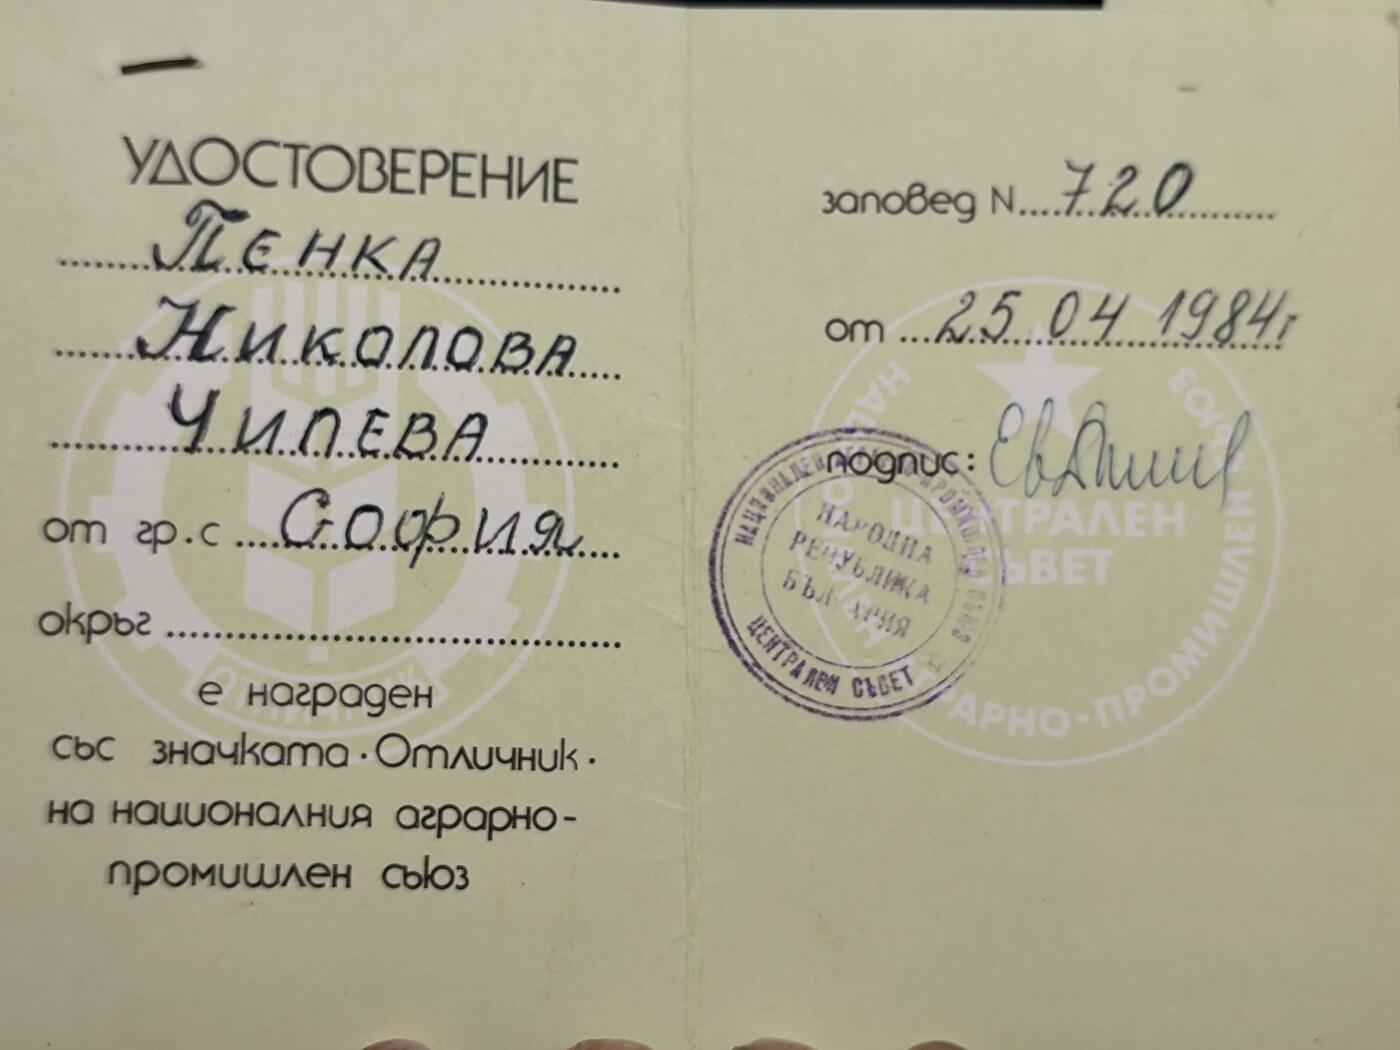 УДОСТОВЕРЕНИЕ
ПЕНКА
НИКОЛОВА
ЧИПЕВА
от гр.с СОФИЯ
окръг
е награден
със значката ·Отличник·
на националния аграрно-
промишлен съюз
ОТЛИЧНИК
заповед N 720
от 25 04 1984г
подпис:
НАРОДНА
РЕПУБЛИКА
БЪЛГАРИЯ
ЦЕНТРАЛЕН СЪВЕТ
ЦЕНТРАЛЕН
СЪВЕТ
АГРАРНО-ПРОМИШЛЕН
СЪЮЗ